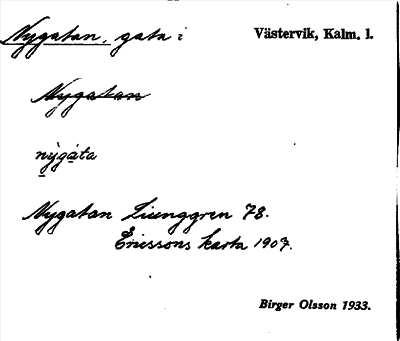 Nygatan, gata i Västervik, Kalm. l.
Nygatan
nỳgáta
Nygatan Ljunggren 78.
Ericssons karta 1907.
Birger Olsson 1933.